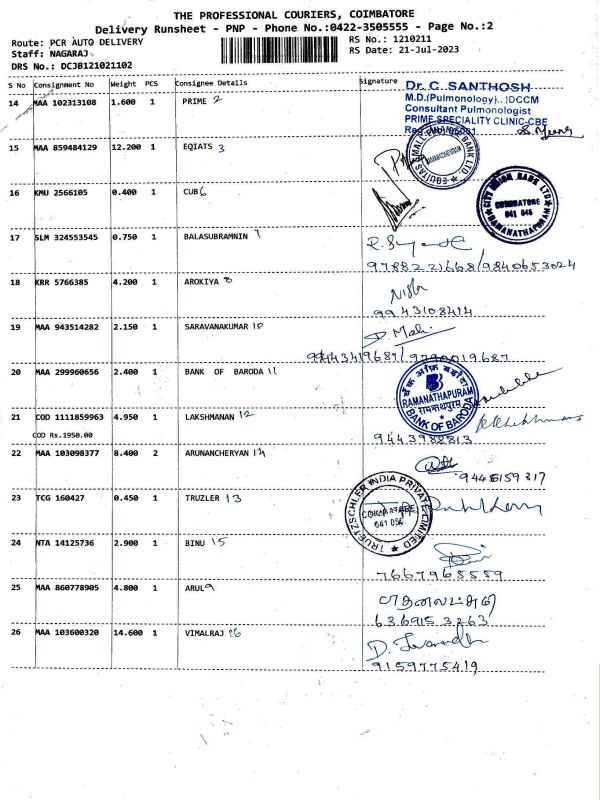 THE PROFESSIONAL COURIERS, COIMBATORE
Delivery Runsheet - PNP - Phone No.:0422-3505555 - Page No.:2
Route: PCR AUTO DELIVERY
RS No.: 1210211
Staff: NAGARAJ
RS Date: 21-Jul-2023
DRS No.: DCJB121021102
S No Consignment No Weight PCS Consignee Details Signature
Dr. C. SANTHOSH
M.D.(Pulmonology)., IDCCM
Consultant Pulmonologist
PRIME SPECIALITY CLINIC-CBE
14 MAA 102313108 1.600 1 PRIME 2
15 MAA 859484129 12.200 1 EQIATS 3
RAMANATHAPURAM
16 KMU 2566105 0.400 1 CUB 6
CITY UNION BANK LTD.
COIMBATORE
641 045
RAMANATHAPURAM
17 SLM 324553545 0.750 1 BALASUBRAMNIN 7
9788221668/9840653024
18 KRR 5766385 4.200 1 AROKIYA 8
Nisha
9943108414
19 MAA 943514282 2.150 1 SARAVANAKUMAR 10
D. Mah
99443419687/9790019687
20 MAA 299960656 2.400 1 BANK OF BARODA 11
बैंक ऑफ़ बड़ौदा
RAMANATHAPURAM
रामनाथपुरम
BANK OF BARODA
21 COD 1111859963 4.950 1 LAKSHMANAN 12
COD Rs.1950.00
9443988813
22 MAA 103098377 8.400 2 ARUNANCHERYAN 14
9446159317
23 TCG 160427 0.450 1 TRUZLER 13
TRUETZSCHLER INDIA PRIVATE LIMITED
COIMBATORE
24 NTA 14125736 2.900 1 BINU 15
7667965559
25 MAA 860778905 4.800 1 ARUL 9
6369153263
26 MAA 103600320 14.600 1 VIMALRAJ 26
9159775419